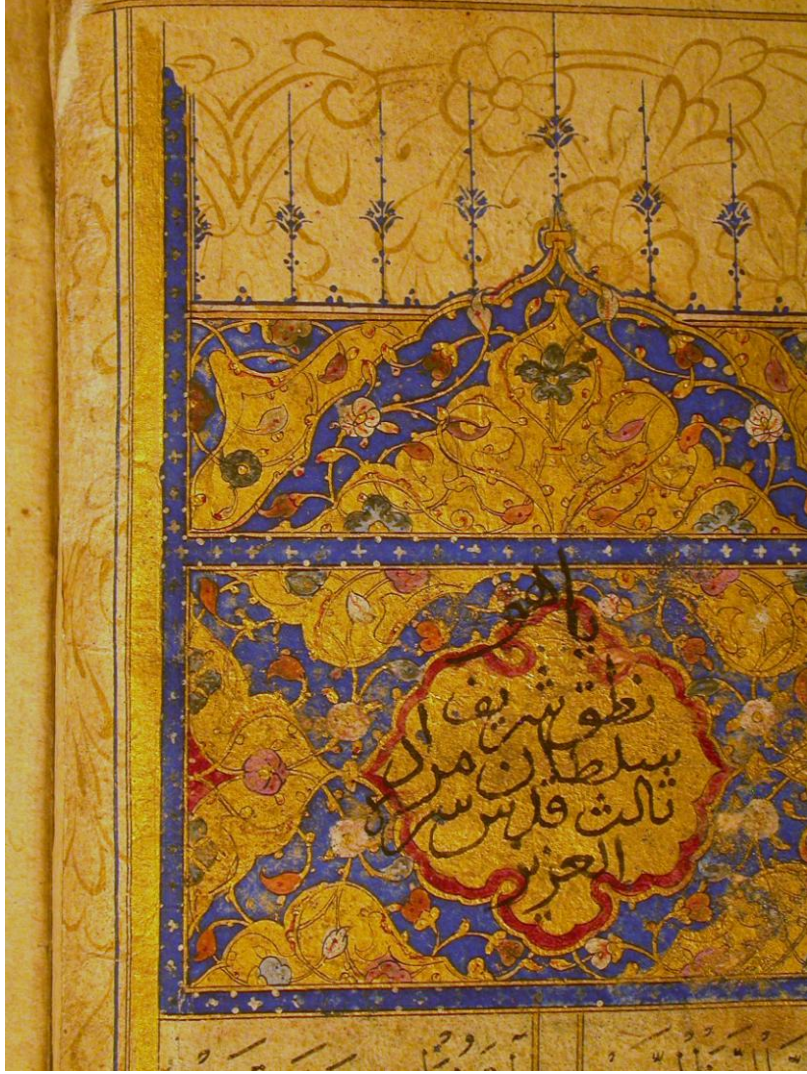 یا هو
نطق شریف
سلطان مراد
ثالث قدس سره
العزیز